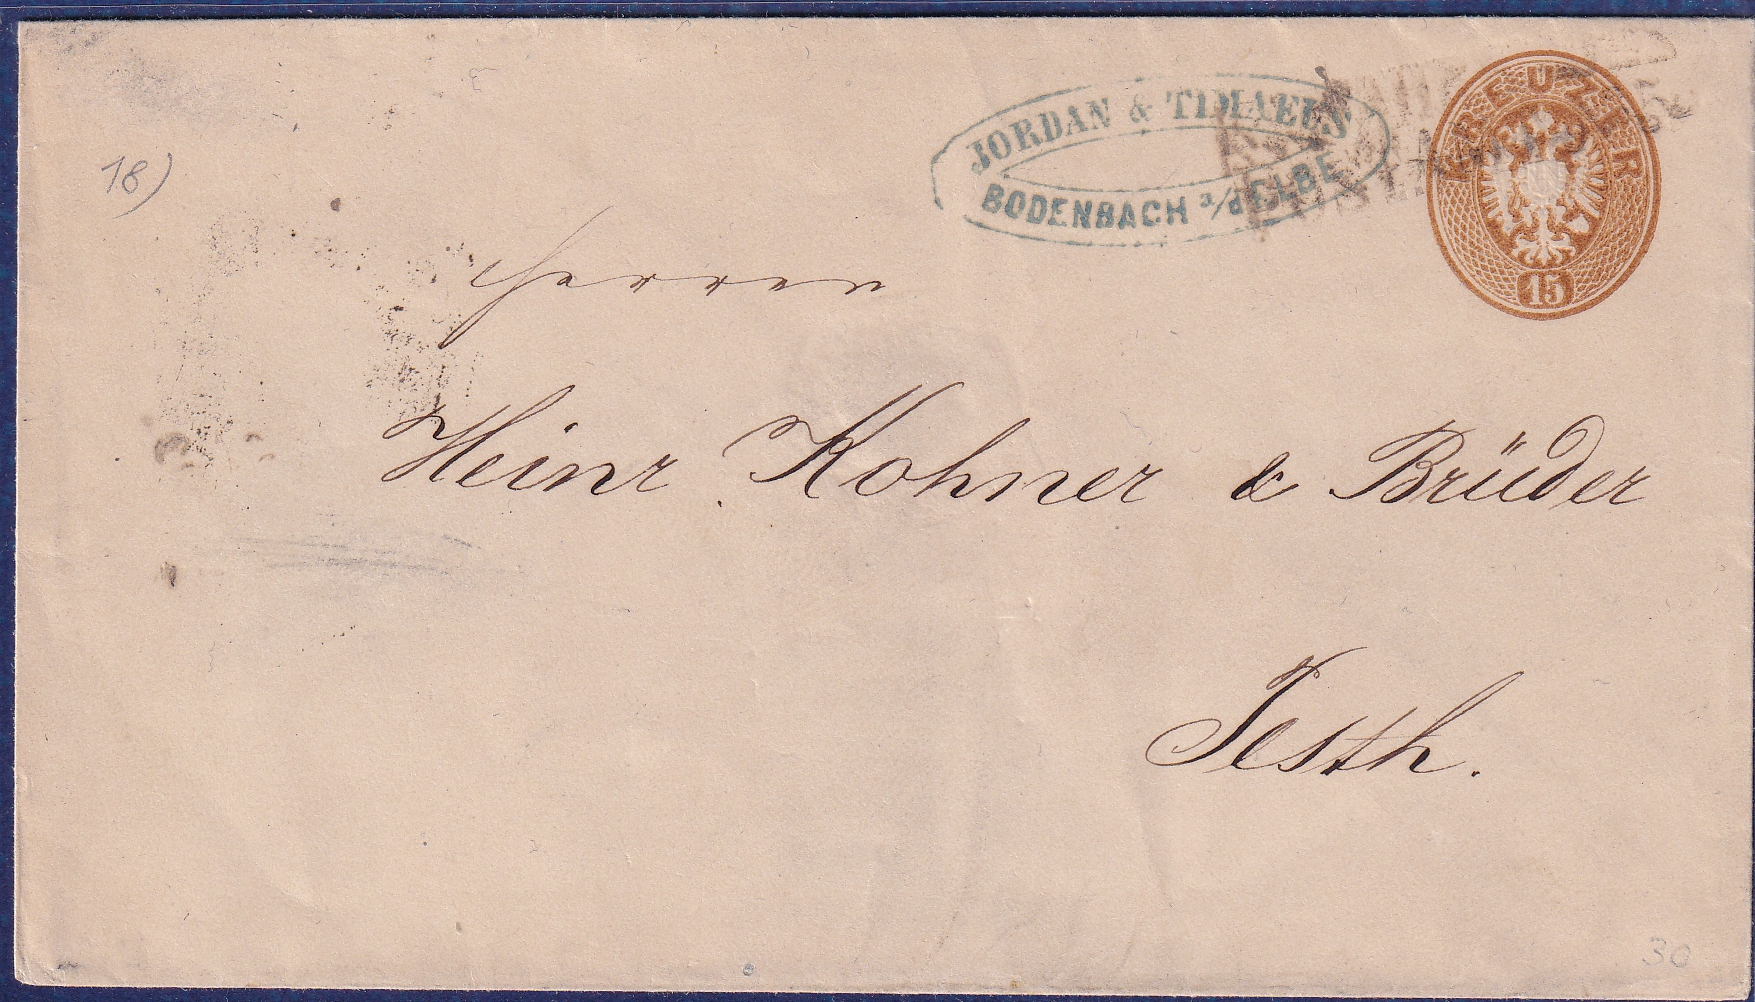 JORDAN & TIMAEUS
BODENBACH a/d ELBE
KREUZER
15
18)
Herren
Heinr Kohner & Brüder
Pesth.
30